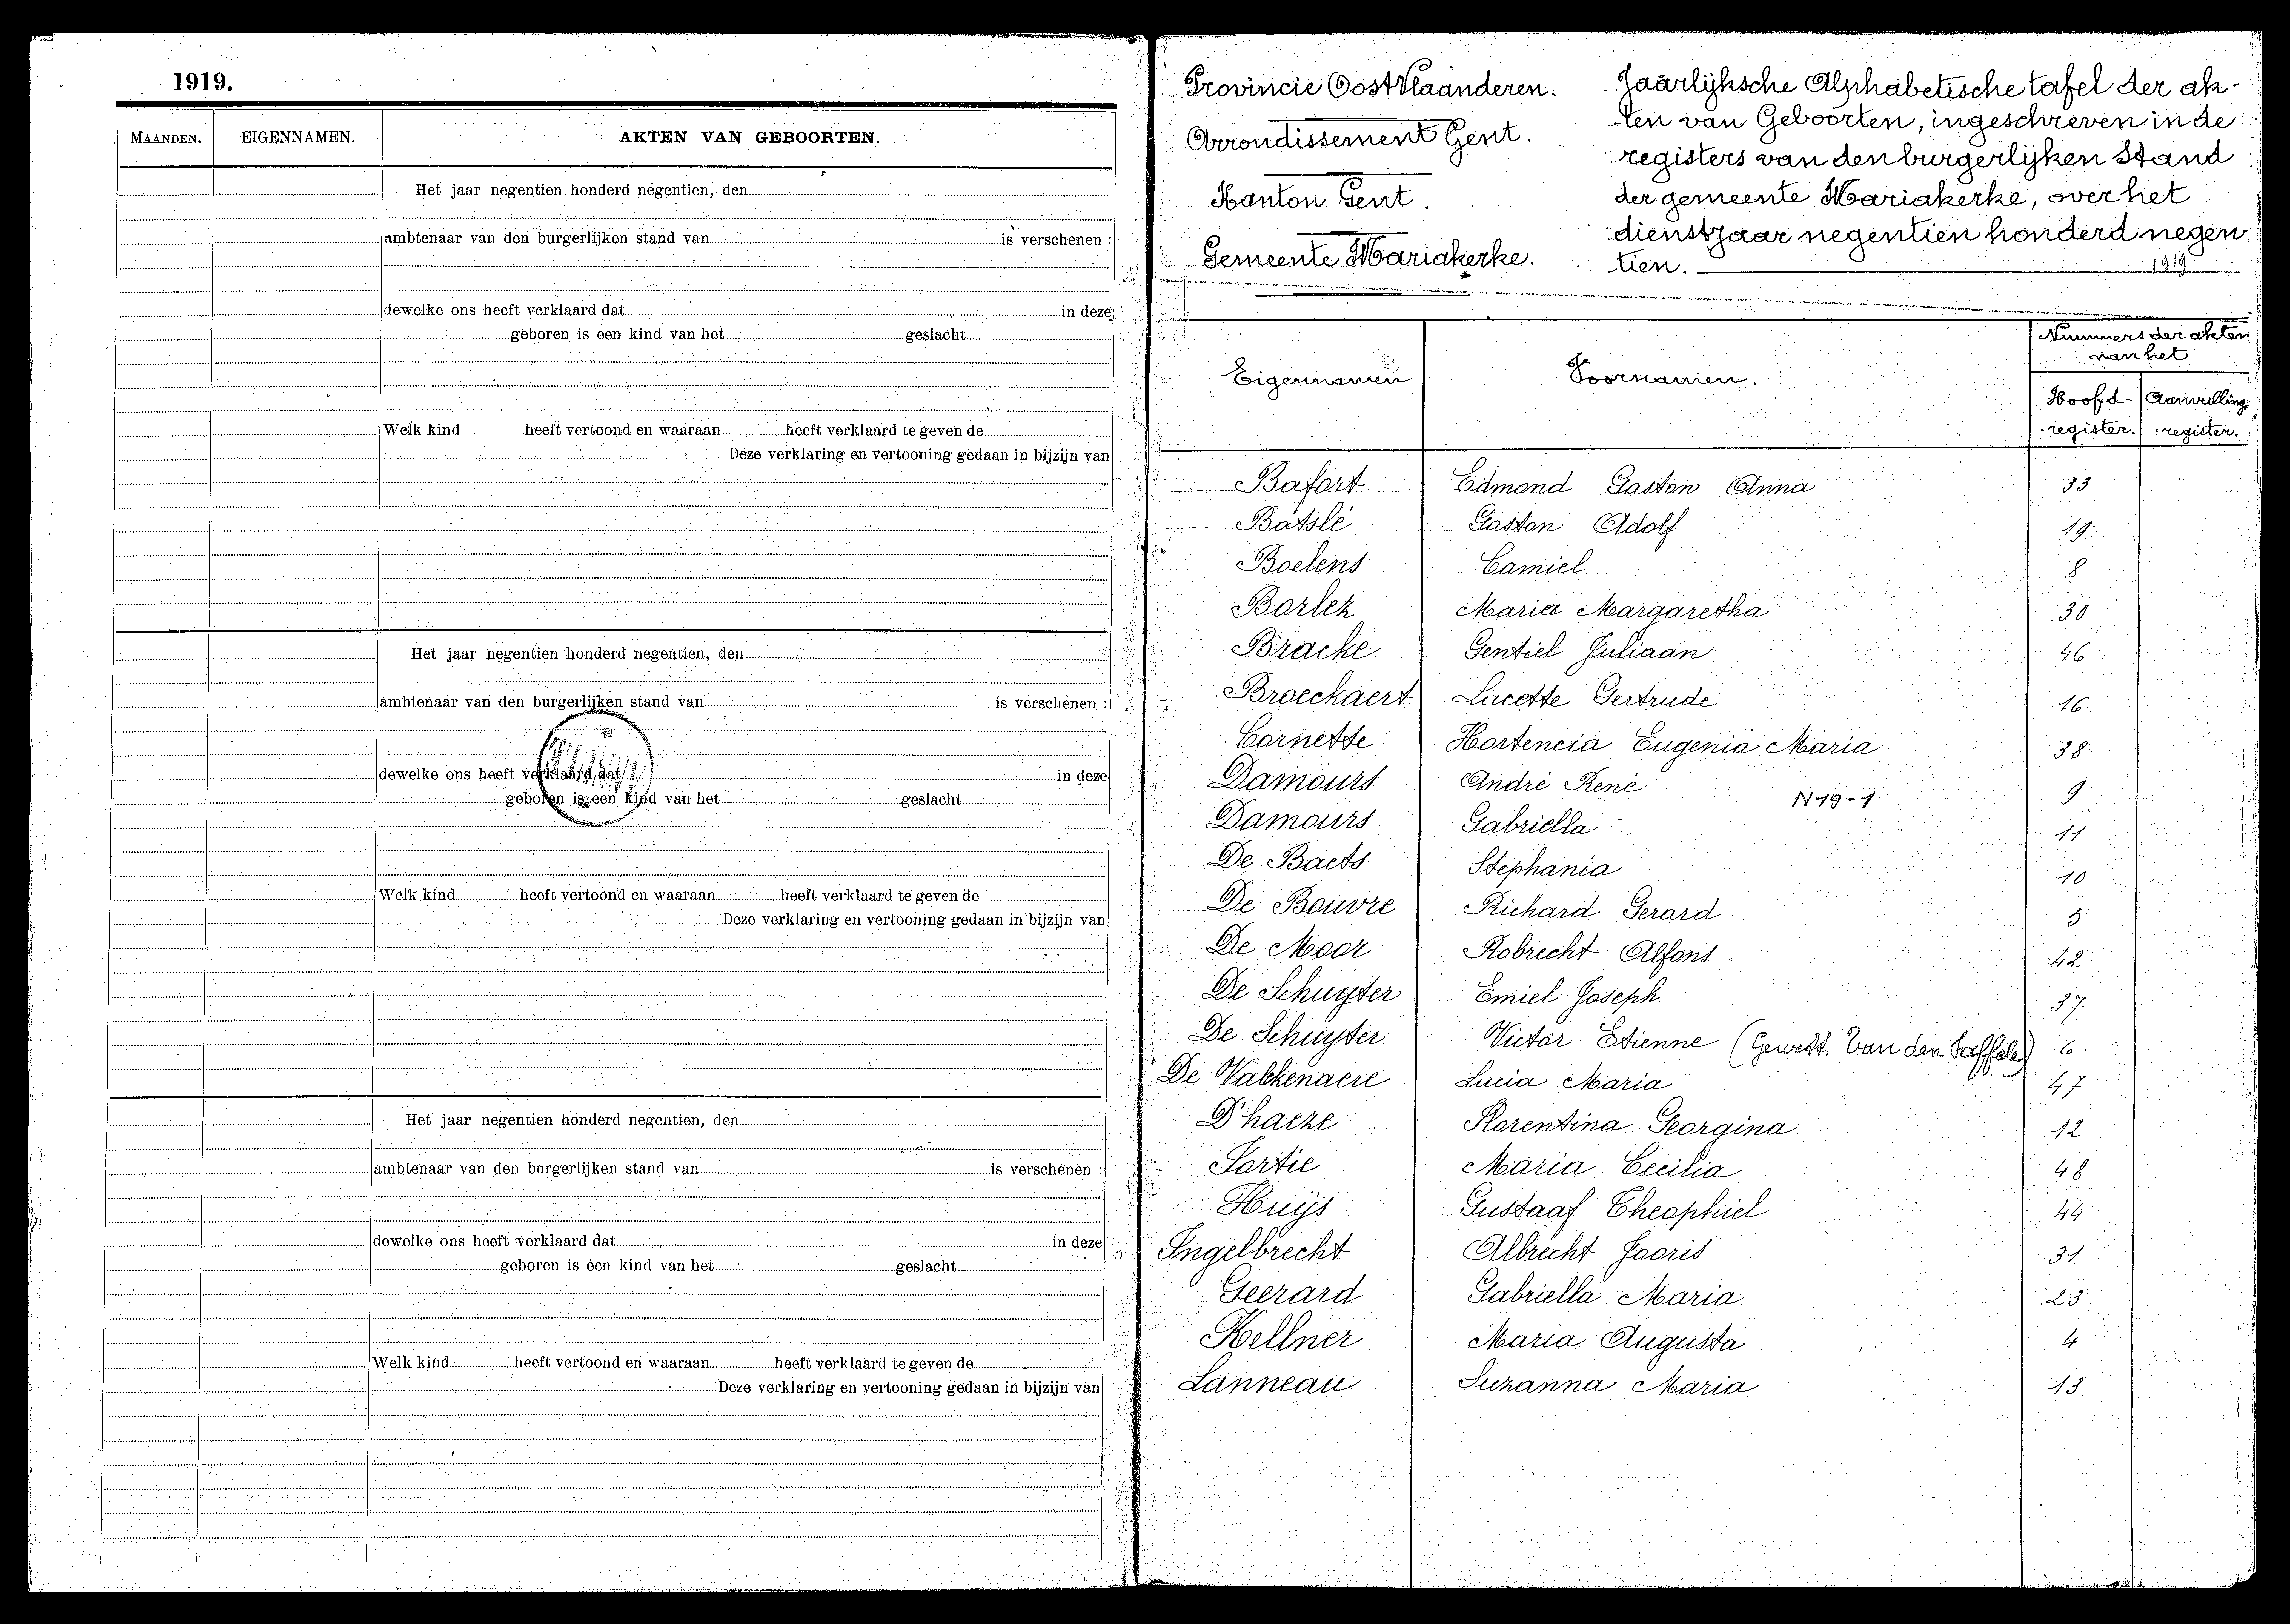 1919.
MAANDEN. EIGENNAMEN. AKTEN VAN GEBOORTEN.
Het jaar negentien honderd negentien, den
ambtenaar van den burgerlijken stand van is verschenen :
dewelke ons heeft verklaard dat in deze
geboren is een kind van het geslacht
Welk kind heeft vertoond en waaraan heeft verklaard te geven de
Deze verklaring en vertooning gedaan in bijzijn van
Het jaar negentien honderd negentien, den
ambtenaar van den burgerlijken stand van is verschenen :
dewelke ons heeft verklaard dat in deze
geboren is een kind van het geslacht
Welk kind heeft vertoond en waaraan heeft verklaard te geven de
Deze verklaring en vertooning gedaan in bijzijn van
Het jaar negentien honderd negentien, den
ambtenaar van den burgerlijken stand van is verschenen :
dewelke ons heeft verklaard dat in deze
geboren is een kind van het geslacht
Welk kind heeft vertoond en waaraan heeft verklaard te geven de
Deze verklaring en vertooning gedaan in bijzijn van
Provincie Oost Vlaanderen.
Arrondissement Gent.
Kanton Gent.
Gemeente Mariakerke.
Jaarlijksche Alphabetische tafel der ak-
ten van Geboorten, ingeschreven in de
registers van den burgerlijken Stand
der gemeente Mariakerke, over het
dienstjaar negentien honderd negen
tien. 1919
Eigennamen Voornamen. Nummers der akten
van het
Hoofd- Aanvulling
register. register.
Bafort Edmond Gaston Anna 33
Batslé Gaston Adolf 19
Boelens Camiel 8
Borlez Maria Margaretha 30
Bracke Gentiel Juliaan 46
Broeckaert Lucette Gertrude 16
Cornette Hortencia Eugenia Maria 38
Damours André René 9
N 19-1
Damours Gabriella 11
De Baets Stephania 10
De Bouvre Richard Gerard 5
De Moor Robrecht Alfons 42
De Schuyter Emiel Joseph 37
De Schuyter Victor Etienne (Gewett. Van den Saffele) 6
De Valckenaere Lucia Maria 47
D'haeze Florentina Georgina 12
Fortie Maria Cecilia 48
Huijs Gustaaf Theophiel 44
Ingelbrecht Albrecht Jooris 31
Geerard Gabriella Maria 23
Kellner Maria Augusta 4
Lanneau Suzanna Maria 13